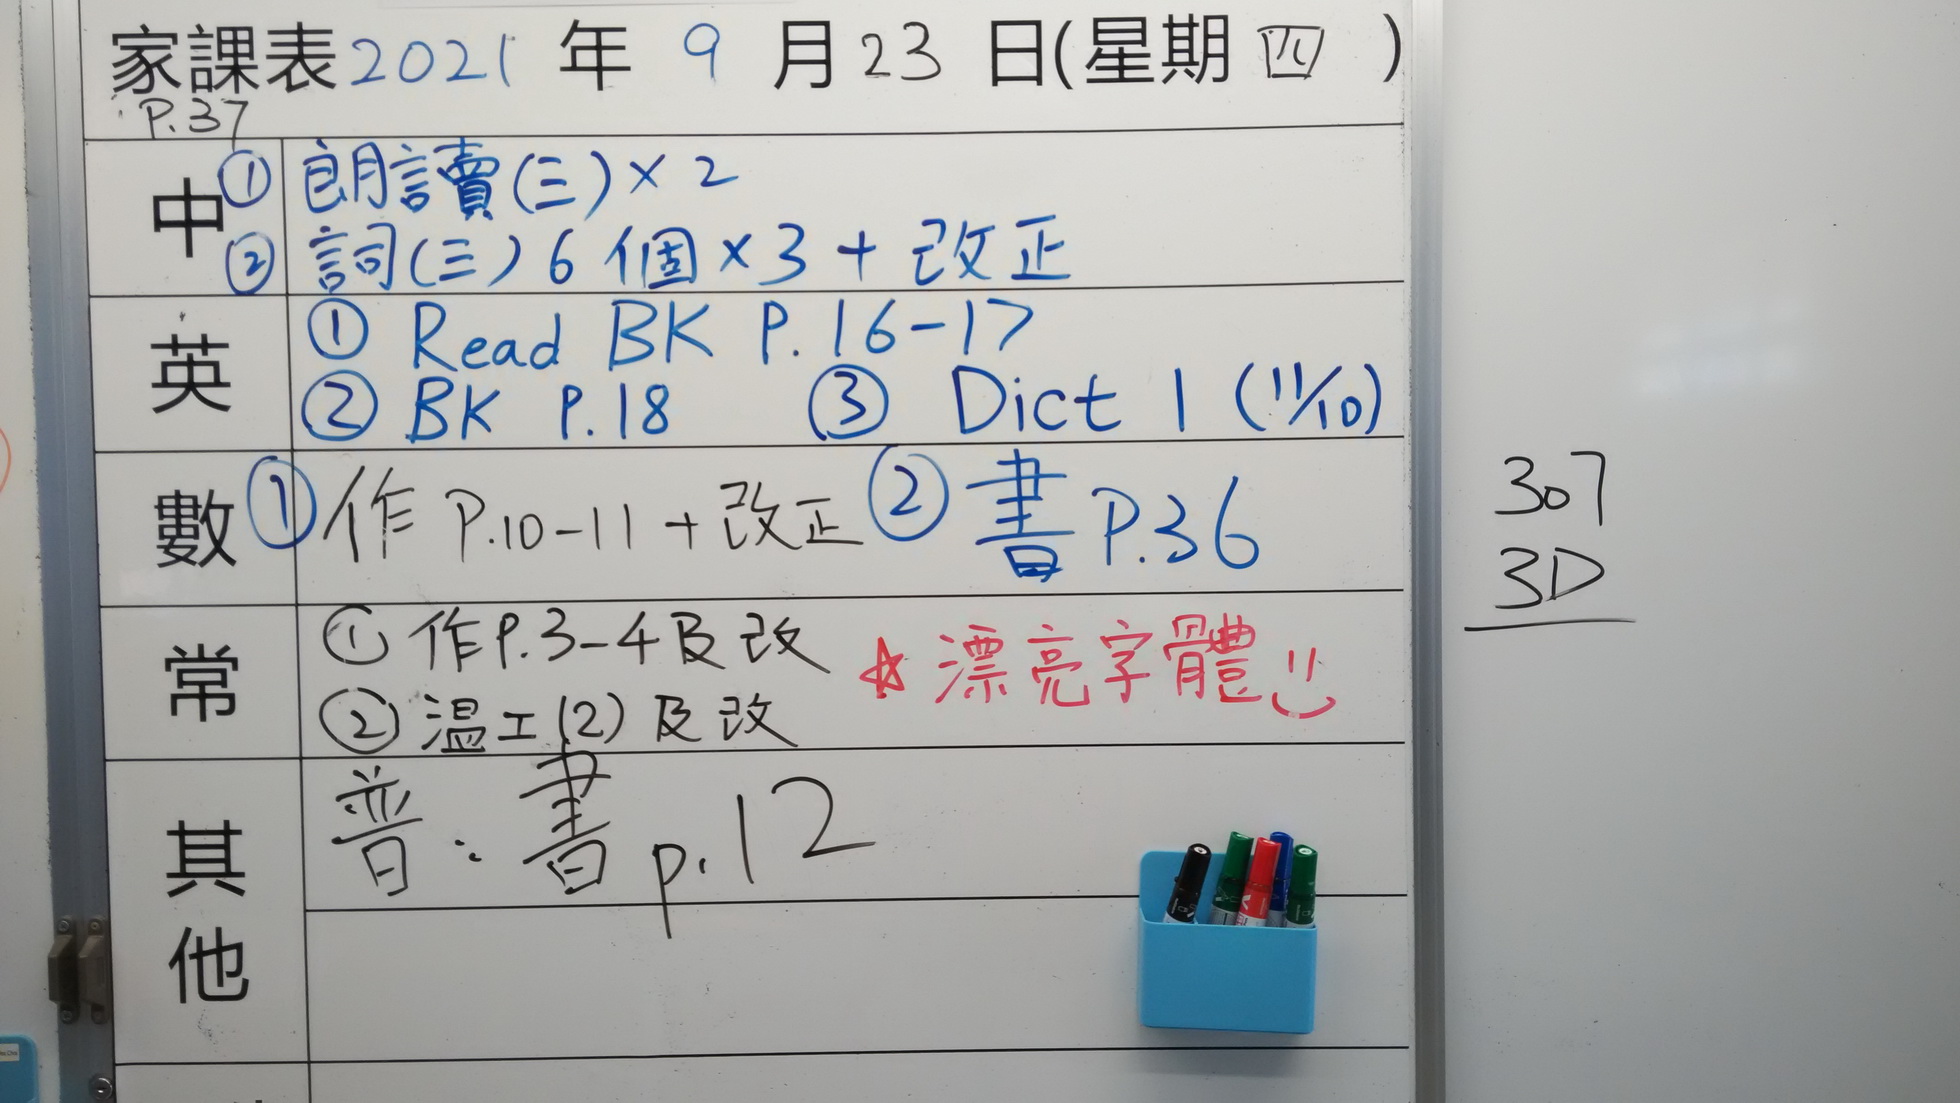 家課表 2021 年 9 月 23 日(星期四)
P.37
中
① 朗讀(三)×2
② 詞(三)6個×3+改正
英
① Read BK P.16-17
② BK P.18 ③ Dict 1 (11/10)
數
① 作 P.10-11+改正 ② 書 P.36
常
① 作P.3-4及改
② 溫工(2)及改
☆漂亮字體
其他
普:書p.12
307
3D